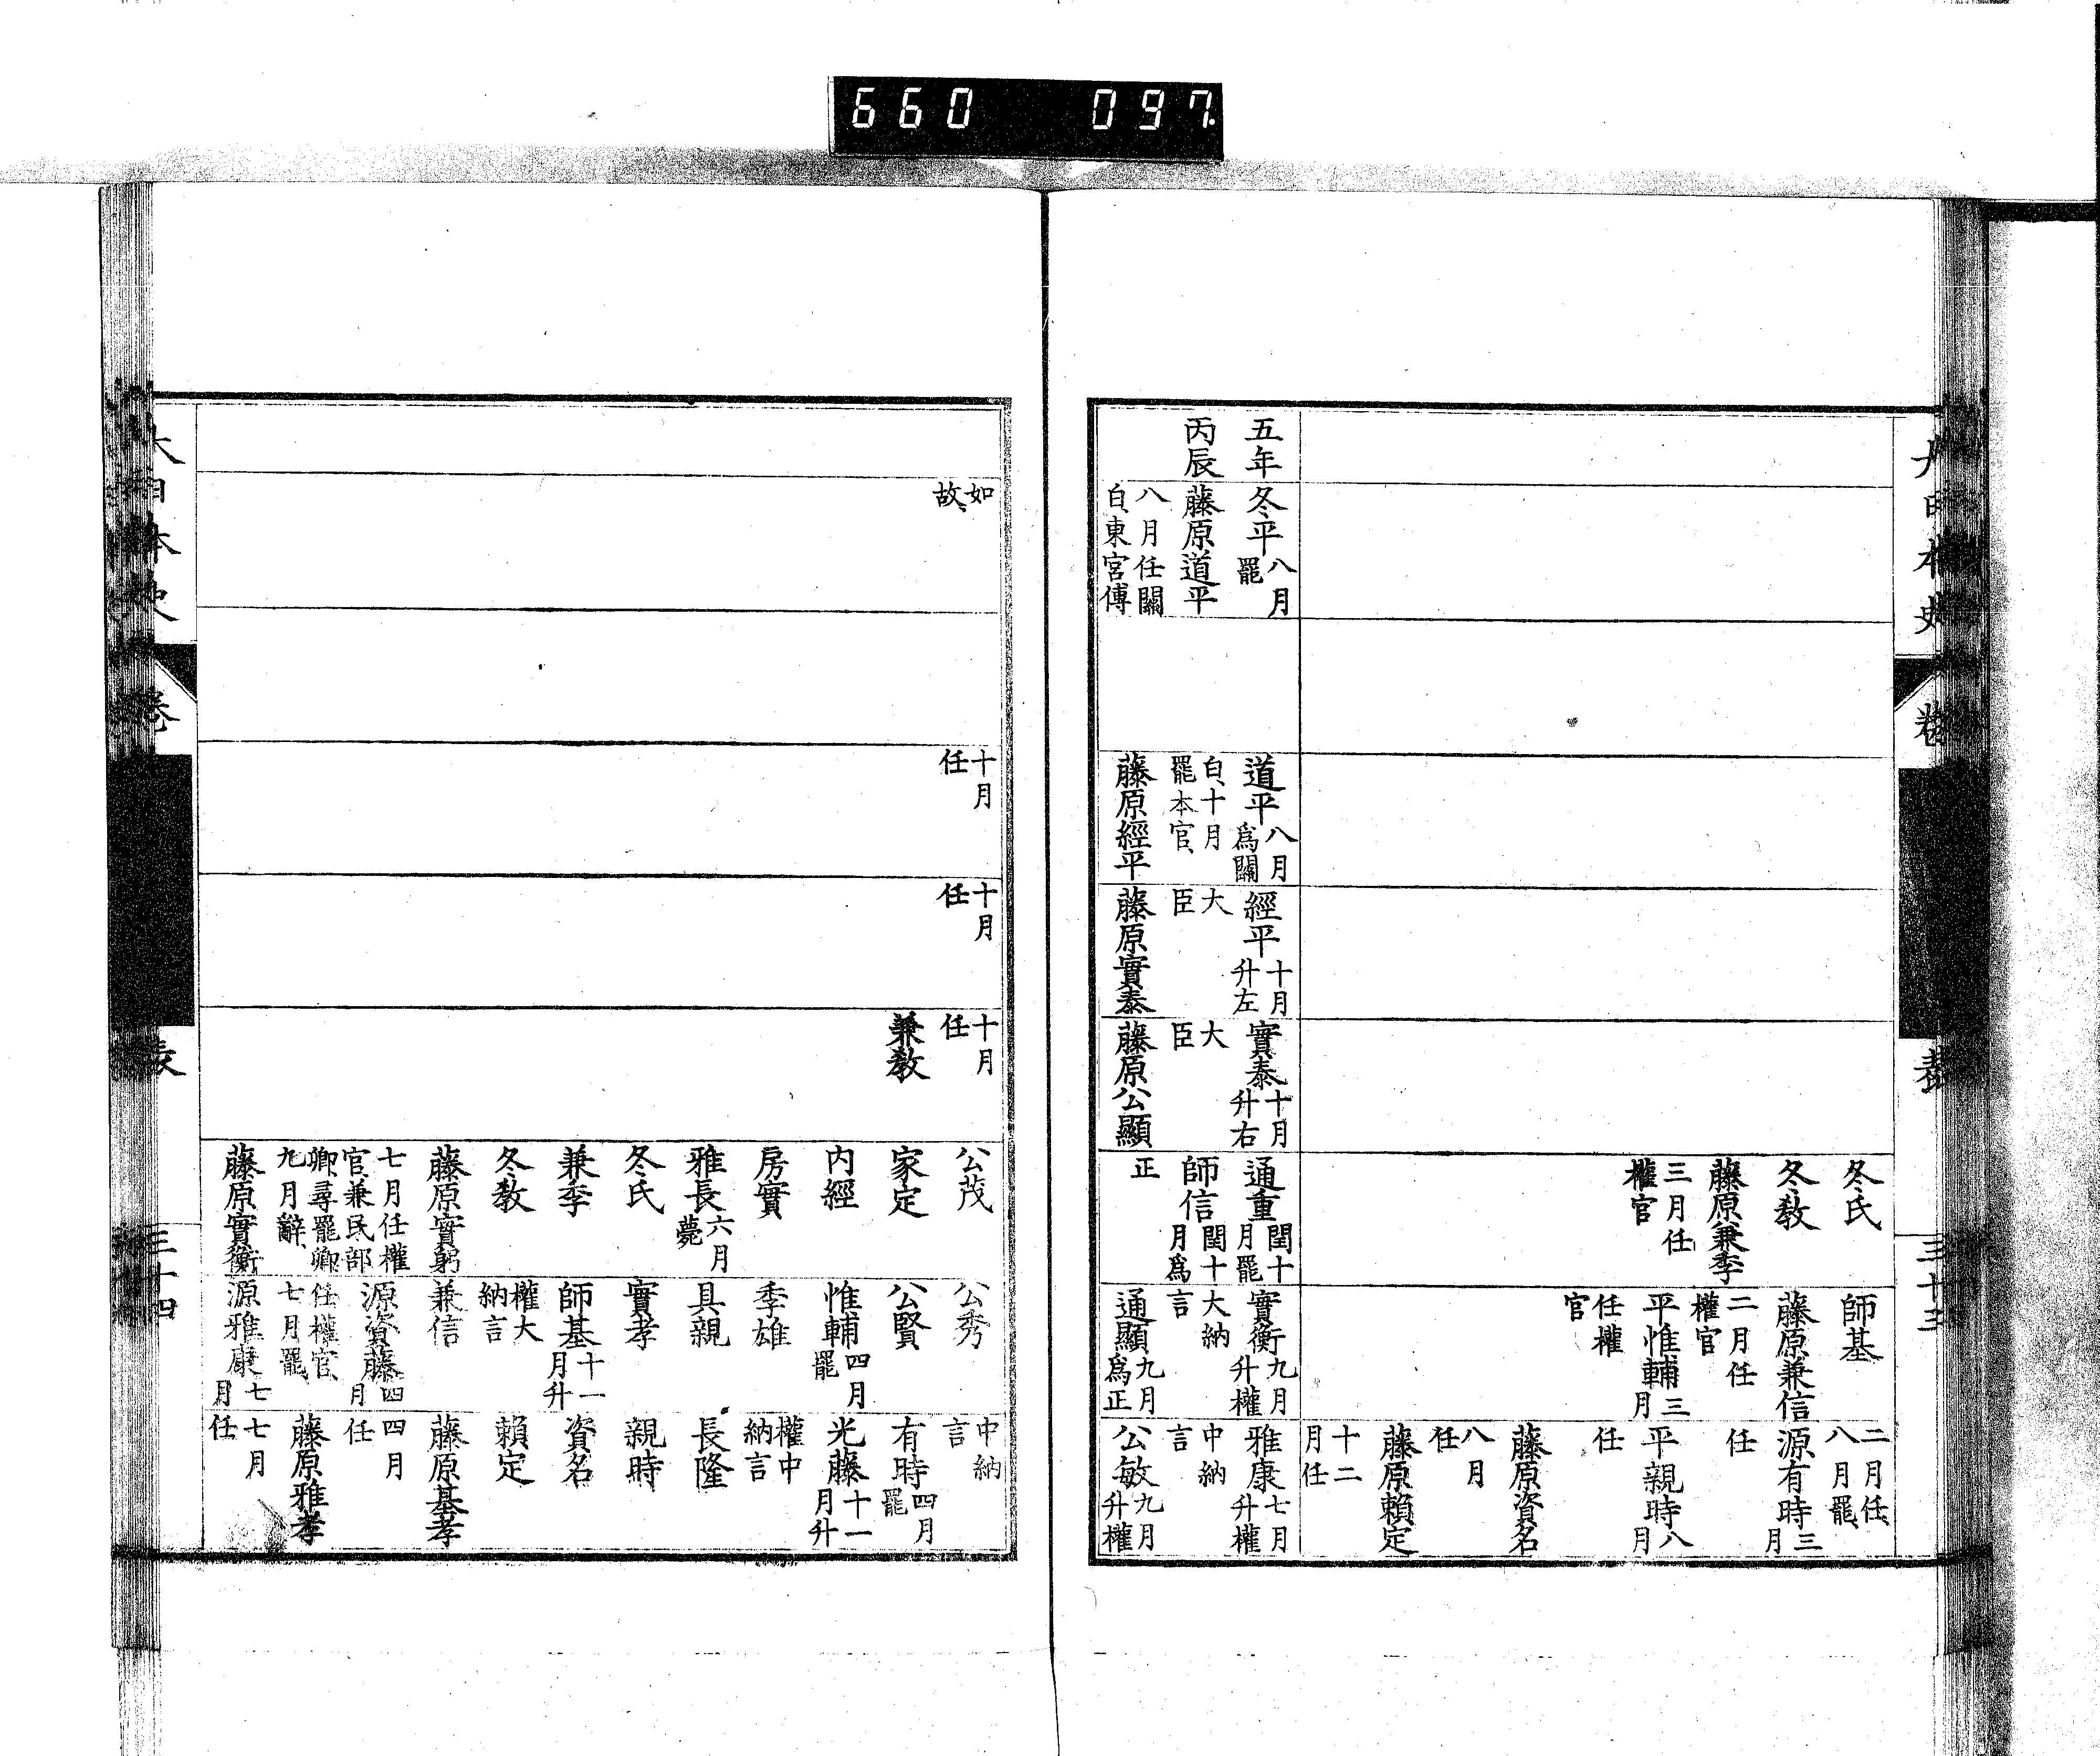 660 097
大日本史
卷
表
三十三
冬氏
冬教
藤原兼季
三月任
權官
師基
藤原兼信
二月任
權官
平惟輔三
月
任權
官
二月任、
八月罷、
源有時三
月
任
平親時八
月
任
藤原資名
八月
任
藤原頼定
十二
月任
五年
丙辰
冬平八月
罷
藤原道平
八月任關
白、東宮傅
道平八月
爲關
白、十月
罷本官、
藤原經平
經平十月
升左
大
臣
藤原實泰
實泰十月
升右
大
臣
藤原公顯
通重閏十
月罷
師信閏十
月爲
正
實衡九月
升權
大納
言
通顯九月
爲正
雅康七月
升權
中納
言
公敏九月
升權
如
故、
十月
任
十月
任
十月
任
兼教
公茂
家定
内經
房實
雅長六月
薨
冬氏
兼季
冬教
藤原實躬
七月任權
官、兼民部
卿、尋罷卿、
九月辭、
藤原實衡
公秀
公賢
惟輔四月
罷
季雄
具親
實孝
師基十一
月升
權大
納言
兼信
源資藤四
月
任權官、
七月罷、
源雅康七
月
中納
言
有時四月
罷
光藤十一
月升
權中
納言
長隆
親時
資名
頼定
藤原基孝
四月
任
藤原雅孝
七月
任
大日本史
卷
表
三十四